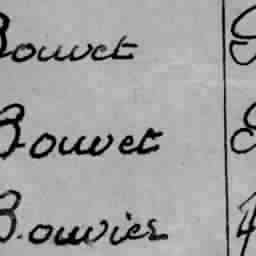 Bouvet
Bouvet
Bouvier